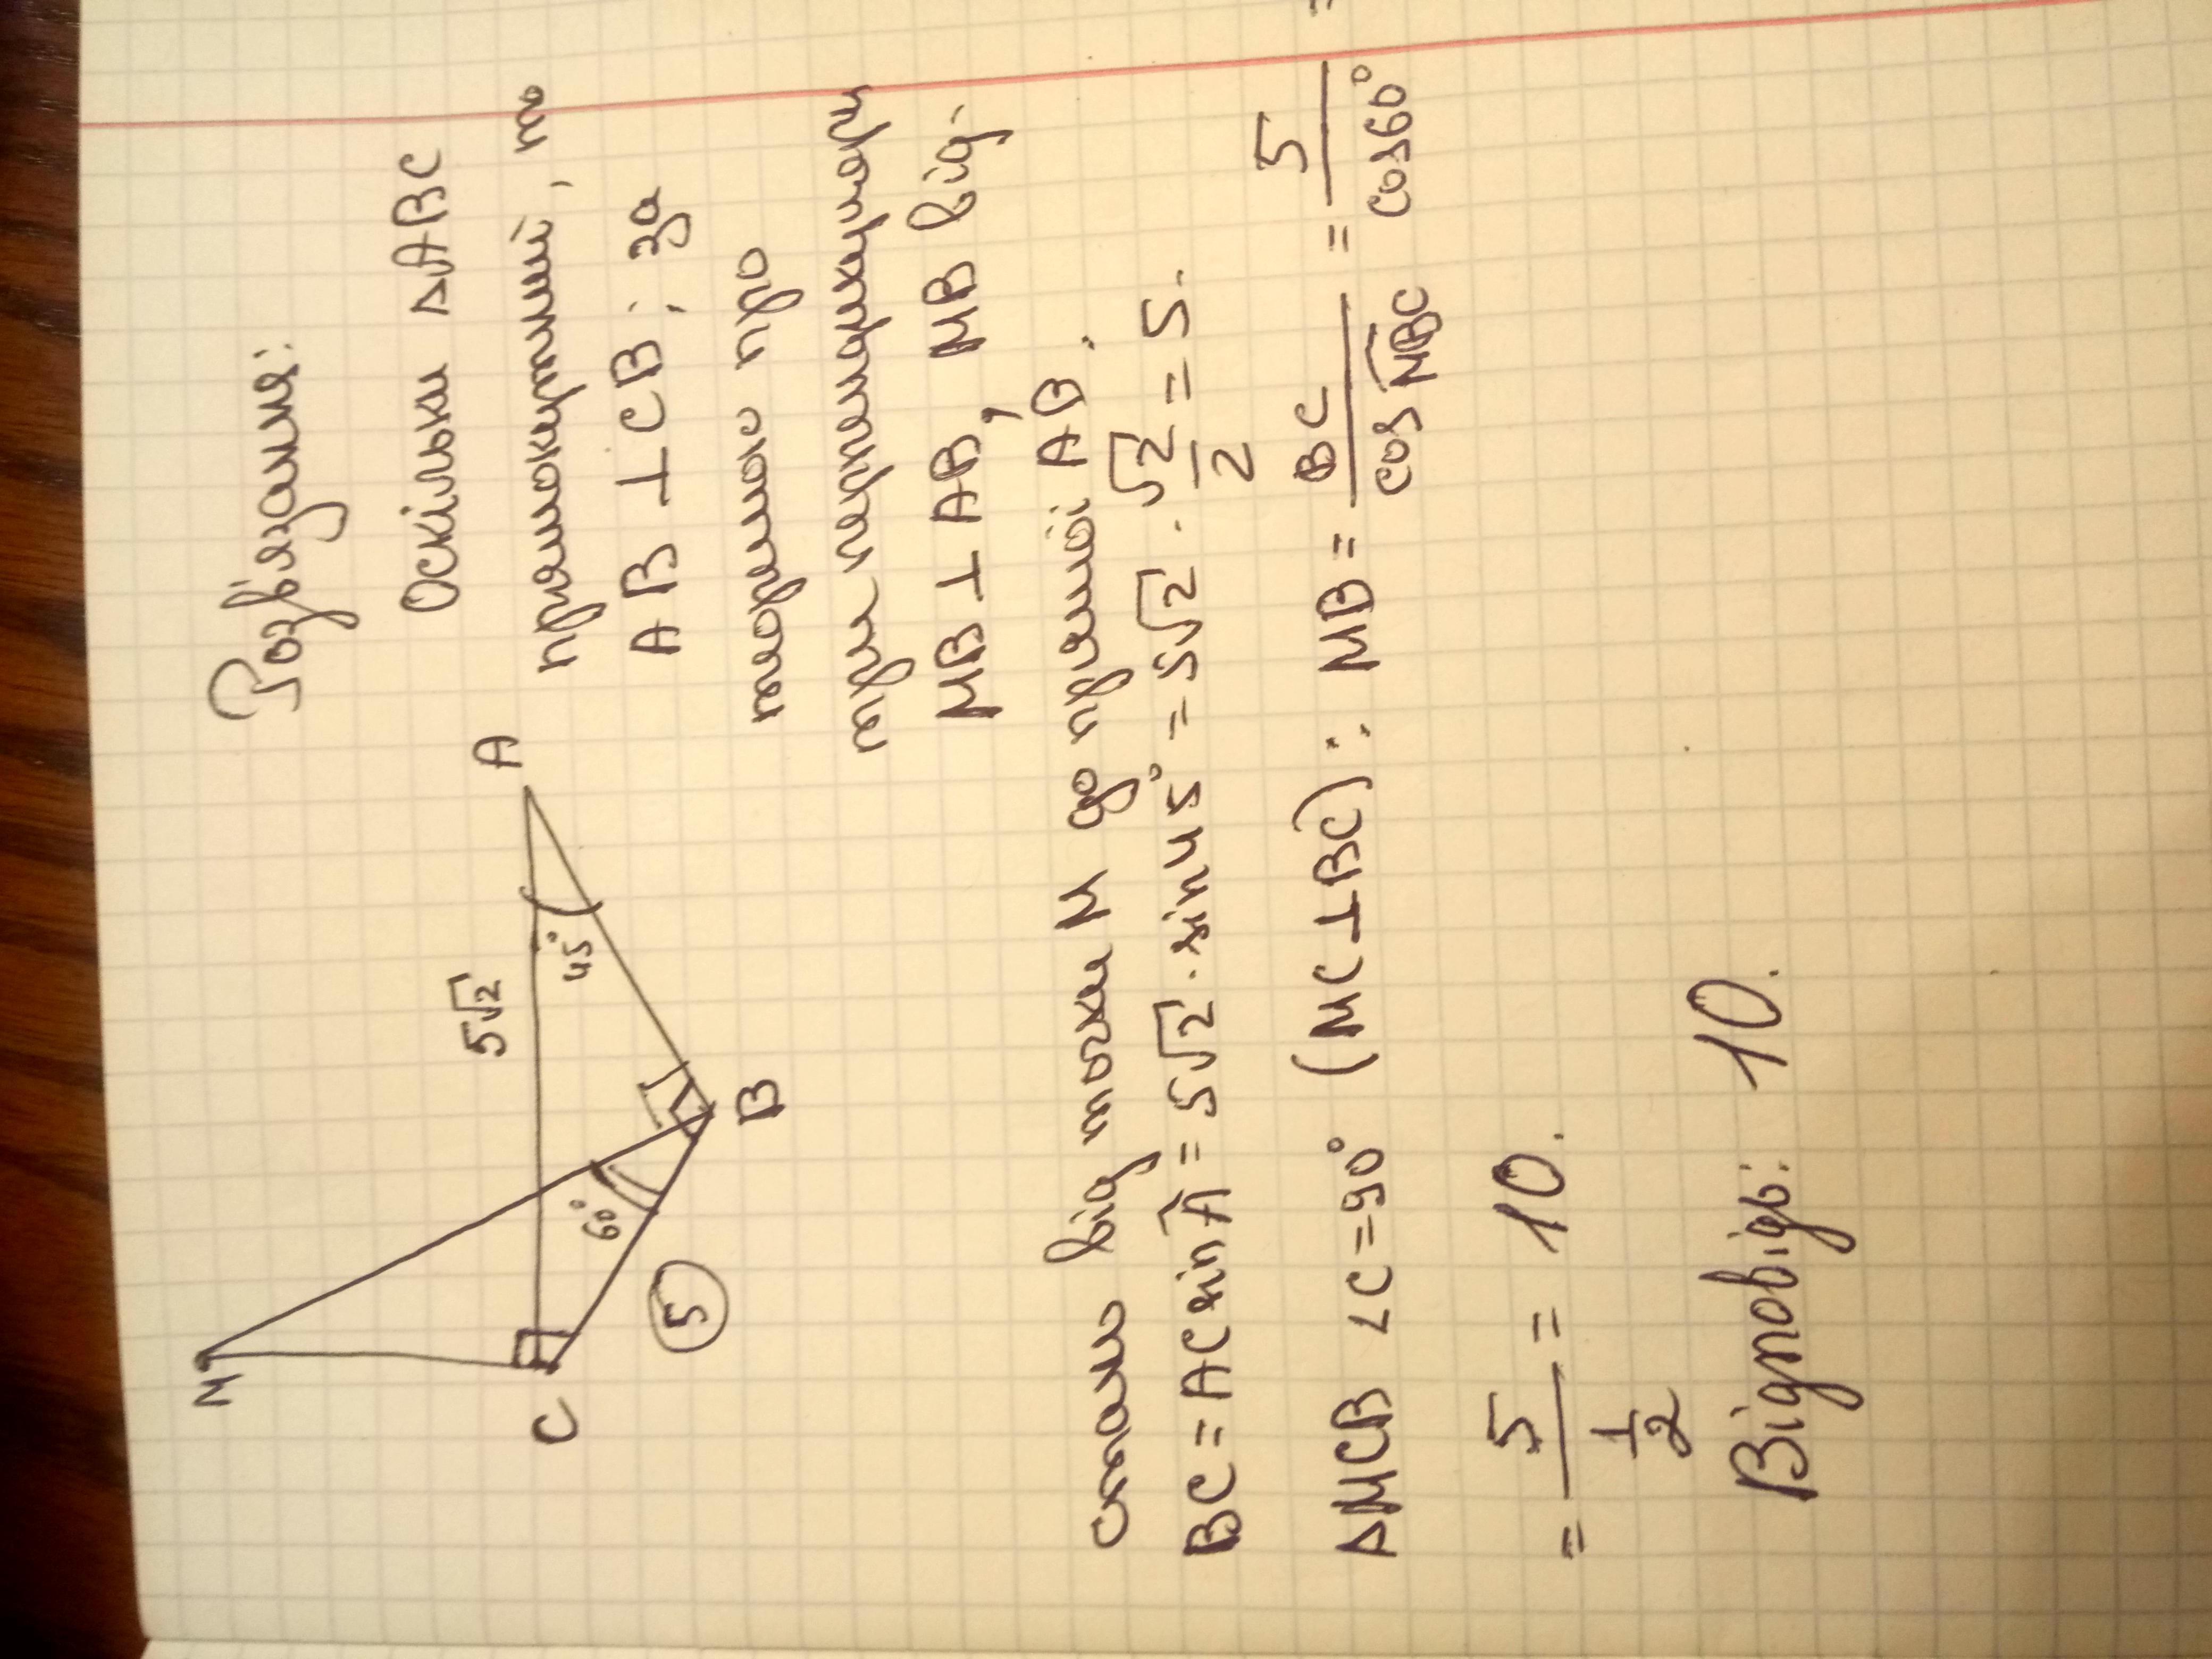 Розв'язання:
Оскільки ΔABC
прямокутний, то
AB ⊥ CB; за
теоремою про
три перпендикуляри
MB ⊥ AB, MB від-
стань від точки M до прямої AB.
BC = AC sin A = 5√2 · sin 45° = 5√2 · √2/2 = 5.
ΔMCB ∠C = 90° (MC ⊥ BC): MB = BC / cos MBC = 5 / cos 60° =
= 5 / (1/2) = 10.
Відповідь: 10.
M
C
A
B
5√2
45°
60°
5